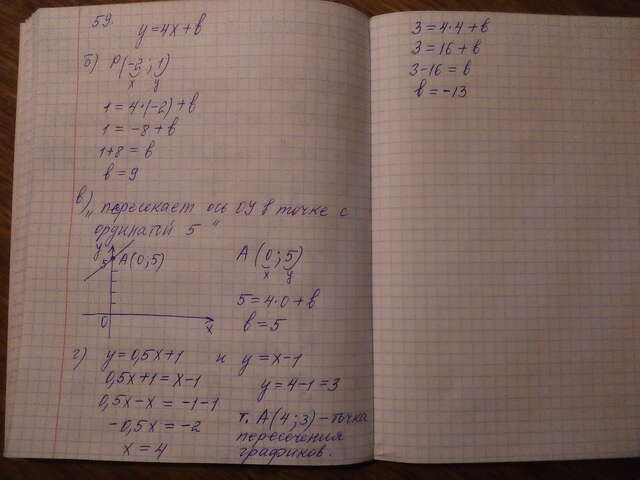 59. y = 4x + b
б) P(-2; 1)
x y
1 = 4·(-2) + b
1 = -8 + b
1+8 = b
b = 9
в) „пересекает ось OY в точке с
ординатой 5“
y
5 A(0; 5)
0 x
A (0; 5)
x y
5 = 4·0 + b
b = 5
г) y = 0,5x+1 и y = x-1
0,5x+1 = x-1
0,5x-x = -1-1
-0,5x = -2
x = 4
y = 4-1 = 3
т. A(4; 3) - точка
пересечения
графиков.
3 = 4·4 + b
3 = 16 + b
3-16 = b
b = -13